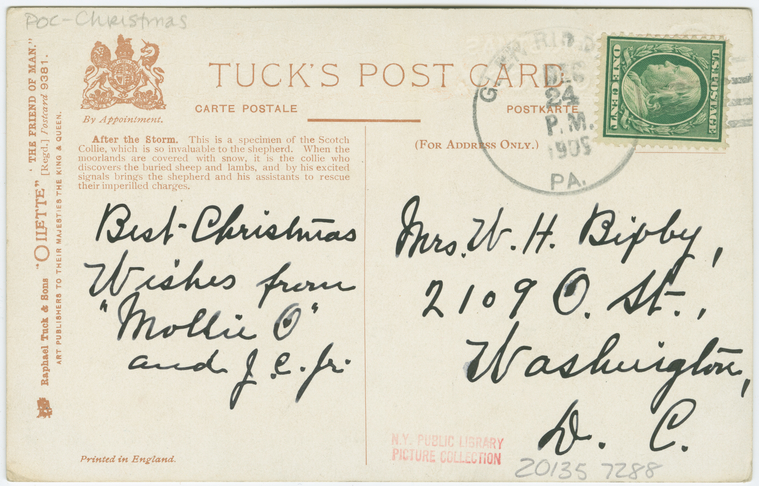 POC-Christmas
TUCK'S POST CARD
CARTE POSTALE
POSTKARTE
By Appointment.
(FOR ADDRESS ONLY.)
Raphael Tuck & Sons "OILETTE" "THE FRIEND OF MAN."
[Regd.] Postcard 9381.
ART PUBLISHERS TO THEIR MAJESTIES THE KING & QUEEN.
After the Storm. This is a specimen of the Scotch
Collie, which is so invaluable to the shepherd. When the
moorlands are covered with snow, it is the collie who
discovers the buried sheep and lambs, and by his excited
signals brings the shepherd and his assistants to rescue
their imperilled charges.
Best-Christmas
Wishes from
"Mollie O"
and J. C. Jr.
DEC
24
P.M.
1909
PA.
U.S. POSTAGE
ONE CENT
Mrs. W. H. Bixby,
2109 O. St.,
Washington,
D. C.
Printed in England.
N.Y. PUBLIC LIBRARY
PICTURE COLLECTION
20135 7288